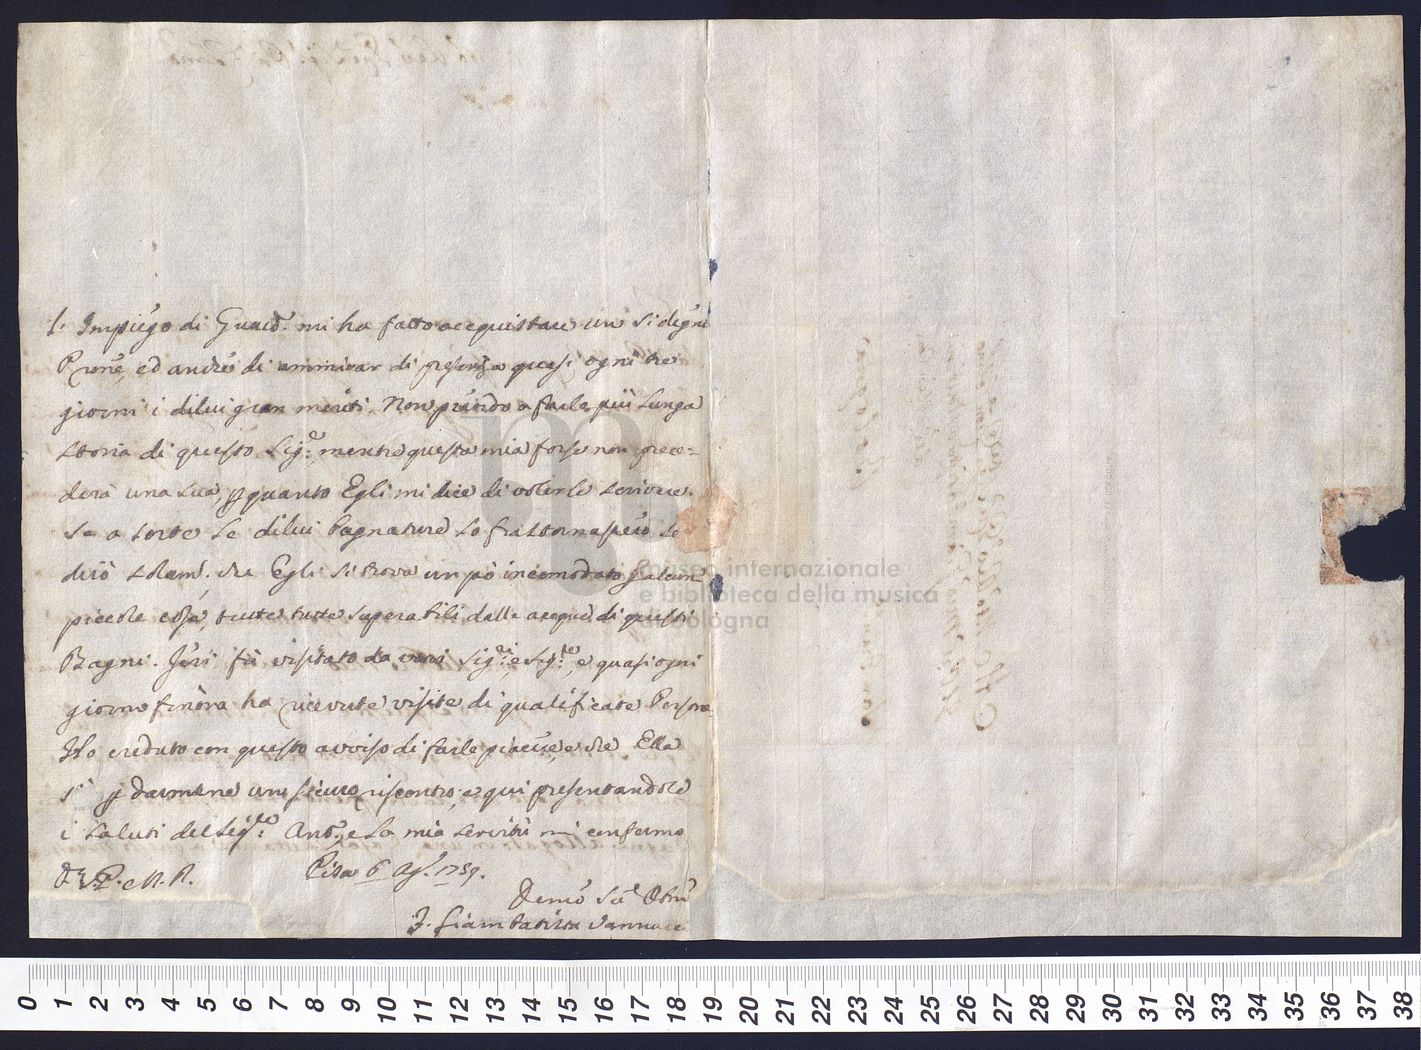 L'Impiego di Guard. mi ha fatto acquistare un sì degno
Pr̃one, ed anche di ammirar di presenza quasi ogni tre
giorni i di lui gran meriti. Non prendo a farle più lunga
storia di questo Sig.e, mentre questa mia forse non prece-
derà una sua, p quanto Egli mi dice di volerle scrivere.
Se a sorte le di lui bagnature lo frastornasero, le
dirò solam. che Egli si trova un pò incomodato p alcune
piccole cose, tutte tutte superabili dalle acque di questi
Bagni. Jeri fù visitato da varj Sig.ri, e Sig.re, e quasi ogni
giorno finora ha ricevute visite di qualificate Persone
Ho creduto con questo avviso di farle piacere, e che Ella
p darmene un sicuro riscontro; e qui presentandole
i saluti del Sig.re Ant., e la mia servitù mi confermo
D. V. P. M. R.
Pisa 6 Ag. 1759.
F. Giambatista Vannucci
museo internazionale
e biblioteca della musica
di bologna
0 1 2 3 4 5 6 7 8 9 10 11 12 13 14 15 16 17 18 19 20 21 22 23 24 25 26 27 28 29 30 31 32 33 34 35 36 37 38